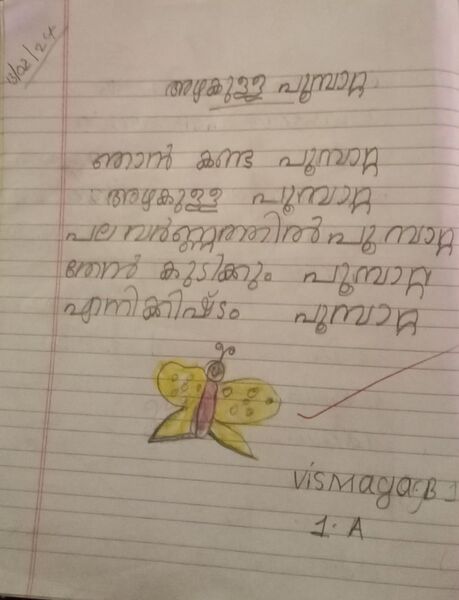 13/02/24
അഴകുള്ള പൂമ്പാറ്റ
ഞാൻ കണ്ട പൂമ്പാറ്റ
അഴകുള്ള പൂമ്പാറ്റ
പല വർണ്ണത്തിൽ പൂമ്പാറ്റ
തേൻ കുടിക്കും പൂമ്പാറ്റ
എനിക്കിഷ്ടം പൂമ്പാറ്റ
Vismaga.B
1. A